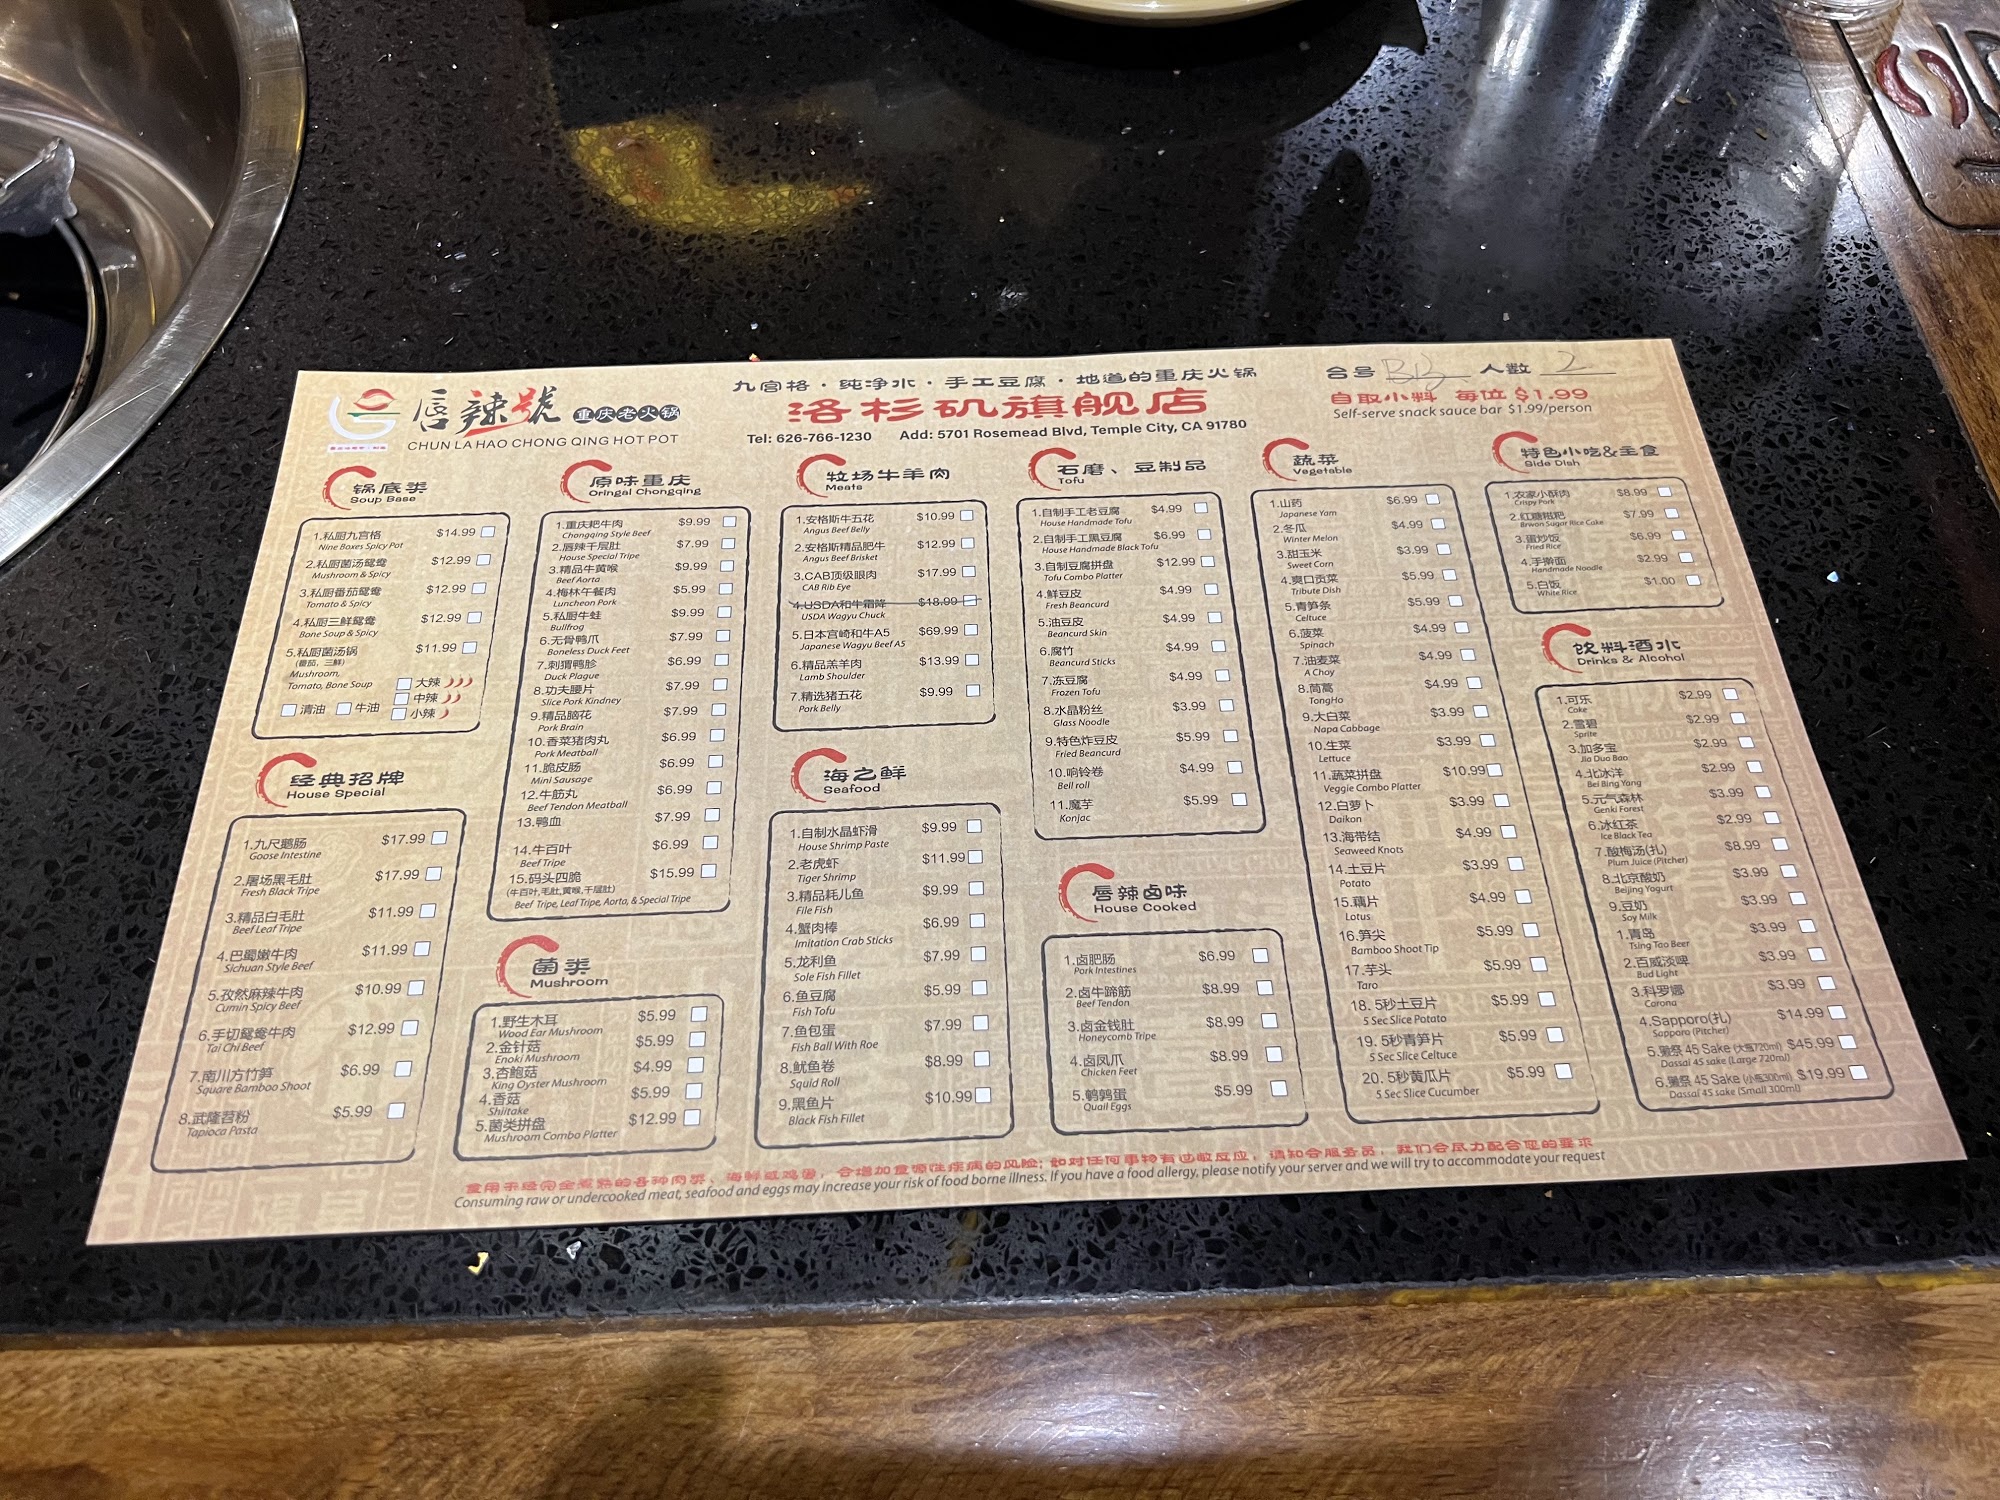 唇辣號 重庆老火锅
CHUN LA HAO CHONG QING HOT POT
九宫格·纯净水·手工豆腐·地道的重庆火锅
洛杉矶旗舰店
Tel: 626-766-1230 Add: 5701 Rosemead Blvd, Temple City, CA 91780
台号 人数 2
自取小料 每位 $1.99
Self-serve snack sauce bar $1.99/person
锅底类
Soup Base
1.私厨九宫格 $14.99
Nine Boxes Spicy Pot
2.私厨菌汤鸳鸯 $12.99
Mushroom & Spicy
3.私厨番茄鸳鸯 $12.99
Tomato & Spicy
4.私厨三鲜鸳鸯 $12.99
Bone Soup & Spicy
5.私厨菌汤锅 $11.99
(番茄, 三鲜)
Mushroom,
Tomato, Bone Soup
大辣
中辣
清油 牛油 小辣
经典招牌
House Special
1.九尺鹅肠 $17.99
Goose Intestine
2.屠场黑毛肚 $17.99
Fresh Black Tripe
3.精品白毛肚 $11.99
Beef Leaf Tripe
4.巴蜀嫩牛肉 $11.99
Sichuan Style Beef
5.孜然麻辣牛肉 $10.99
Cumin Spicy Beef
6.手切鸳鸯牛肉 $12.99
Tai Chi Beef
7.南川方竹笋 $6.99
Square Bamboo Shoot
8.武隆苕粉 $5.99
Tapioca Pasta
原味重庆
Oringal Chongqing
1.重庆耙牛肉 $9.99
Chongqing Style Beef
2.唇辣千层肚 $7.99
House Special Tripe
3.精品牛黄喉 $9.99
Beef Aorta
4.梅林午餐肉 $5.99
Luncheon Pork
5.私厨牛蛙 $9.99
Bullfrog
6.无骨鸭爪 $7.99
Boneless Duck Feet
7.刺猬鸭胗 $6.99
Duck Plague
8.功夫腰片 $7.99
Slice Pork Kindney
9.精品脑花 $7.99
Pork Brain
10.香菜猪肉丸 $6.99
Pork Meatball
11.脆皮肠 $6.99
Mini Sausage
12.牛筋丸 $6.99
Beef Tendon Meatball
13.鸭血 $7.99
14.牛百叶 $6.99
Beef Tripe
15.码头四脆 $15.99
(牛百叶,毛肚,黄喉,千层肚)
Beef Tripe, Leaf Tripe, Aorta, & Special Tripe
菌类
Mushroom
1.野生木耳 $5.99
Wood Ear Mushroom
2.金针菇 $5.99
Enoki Mushroom
3.杏鲍菇 $4.99
King Oyster Mushroom
4.香菇 $5.99
Shiitake
5.菌类拼盘 $12.99
Mushroom Combo Platter
牧场牛羊肉
Meats
1.安格斯牛五花 $10.99
Angus Beef Belly
2.安格斯精品肥牛 $12.99
Angus Beef Brisket
3.CAB顶级眼肉 $17.99
CAB Rib Eye
4.USDA和牛霜降 $18.99
USDA Wagyu Chuck
5.日本宫崎和牛A5 $69.99
Japanese Wagyu Beef A5
6.精品羔羊肉 $13.99
Lamb Shoulder
7.精选猪五花 $9.99
Pork Belly
海之鲜
Seafood
1.自制水晶虾滑 $9.99
House Shrimp Paste
2.老虎虾 $11.99
Tiger Shrimp
3.精品耗儿鱼 $9.99
File Fish
4.蟹肉棒 $6.99
Imitation Crab Sticks
5.龙利鱼 $7.99
Sole Fish Fillet
6.鱼豆腐 $5.99
Fish Tofu
7.鱼包蛋 $7.99
Fish Ball With Roe
8.鱿鱼卷 $8.99
Squid Roll
9.黑鱼片 $10.99
Black Fish Fillet
石磨、豆制品
Tofu
1.自制手工老豆腐 $4.99
House Handmade Tofu
2.自制手工黑豆腐 $6.99
House Handmade Black Tofu
3.自制豆腐拼盘 $12.99
Tofu Combo Platter
4.鲜豆皮 $4.99
Fresh Beancurd
5.油豆皮 $4.99
Beancurd Skin
6.腐竹 $4.99
Beancurd Sticks
7.冻豆腐 $4.99
Frozen Tofu
8.水晶粉丝 $3.99
Glass Noodle
9.特色炸豆皮 $5.99
Fried Beancurd
10.响铃卷 $4.99
Bell roll
11.魔芋 $5.99
Konjac
唇辣卤味
House Cooked
1.卤肥肠 $6.99
Pork Intestines
2.卤牛蹄筋 $8.99
Beef Tendon
3.卤金钱肚 $8.99
Honeycomb Tripe
4.卤凤爪 $8.99
Chicken Feet
5.鹌鹑蛋 $5.99
Quail Eggs
蔬菜
Vegetable
1.山药 $6.99
Japanese Yam
2.冬瓜 $4.99
Winter Melon
3.甜玉米 $3.99
Sweet Corn
4.爽口贡菜 $5.99
Tribute Dish
5.青笋条 $5.99
Celtuce
6.菠菜 $4.99
Spinach
7.油麦菜 $4.99
A Choy
8.茼蒿 $4.99
TongHo
9.大白菜 $3.99
Napa Cabbage
10.生菜 $3.99
Lettuce
11.蔬菜拼盘 $10.99
Veggie Combo Platter
12.白萝卜 $3.99
Daikon
13.海带结 $4.99
Seaweed Knots
14.土豆片 $3.99
Potato
15.藕片 $4.99
Lotus
16.笋尖 $5.99
Bamboo Shoot Tip
17.芋头 $5.99
Taro
18. 5秒土豆片 $5.99
5 Sec Slice Potato
19. 5秒青笋片 $5.99
5 Sec Slice Celtuce
20. 5秒黄瓜片 $5.99
5 Sec Slice Cucumber
特色小吃&主食
Side Dish
1.农家小酥肉 $8.99
Crispy Pork
2.红糖糍粑 $7.99
Brwon Sugar Rice Cake
3.蛋炒饭 $6.99
Fried Rice
4.手擀面 $2.99
Handmade Noodle
5.白饭 $1.00
White Rice
饮料酒水
Drinks & Alcohol
1.可乐 $2.99
Coke
2.雪碧 $2.99
Sprite
3.加多宝 $2.99
Jia Duo Bao
4.北冰洋 $2.99
Bei Bing Yang
5.元气森林 $3.99
Genki Forest
6.冰红茶 $2.99
Ice Black Tea
7.酸梅汤(扎) $8.99
Plum Juice (Pitcher)
8.北京酸奶 $3.99
Beijing Yogurt
9.豆奶 $3.99
Soy Milk
1.青岛 $3.99
Tsing Tao Beer
2.百威淡啤 $3.99
Bud Light
3.科罗娜 $3.99
Corona
4.Sapporo(扎) $14.99
Sapporo (Pitcher)
5.獭祭 45 Sake (大瓶720ml) $45.99
Dassai 45 sake (Large 720ml)
6.獭祭 45 Sake (小瓶300ml) $19.99
Dassai 45 sake (Small 300ml)
食用未经完全煮熟的各种肉类、海鲜或鸡蛋，会增加食源性疾病的风险; 如对任何事物有过敏反应，请知会服务员，我们会尽力配合您的要求
Consuming raw or undercooked meat, seafood and eggs may increase your risk of food borne illness. If you have a food allergy, please notify your server and we will try to accommodate your request